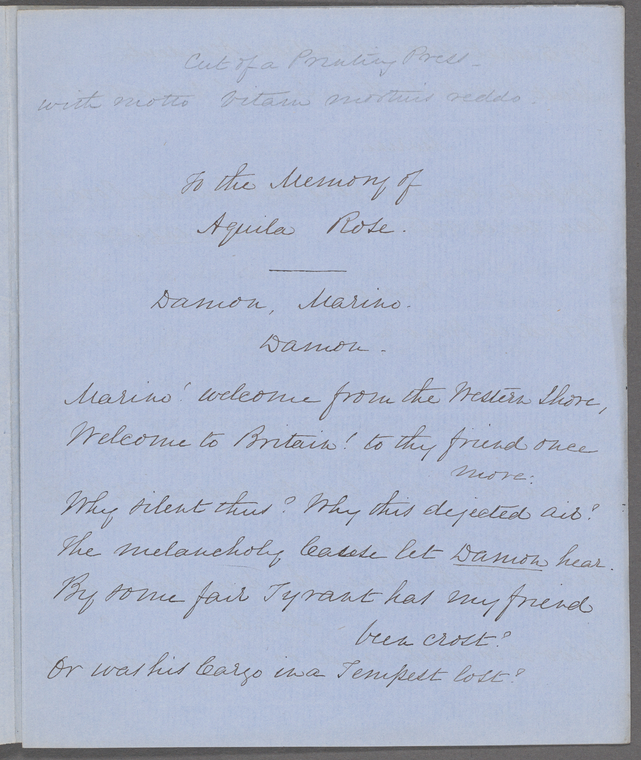 Cut of a Printing Press -
with motto Vitam mortuis reddo.
To the Memory of
Aquila Rose.
Damon, Marino.
Damon.
Marino! welcome from the Western Shore,
Welcome to Britain! to thy friend once
more:
Why silent thus? Why this dejected air?
The melancholy Cause let Damon hear.
By some fair Tyrant has my friend
been crost?
Or was his Cargo in a Tempest lost?